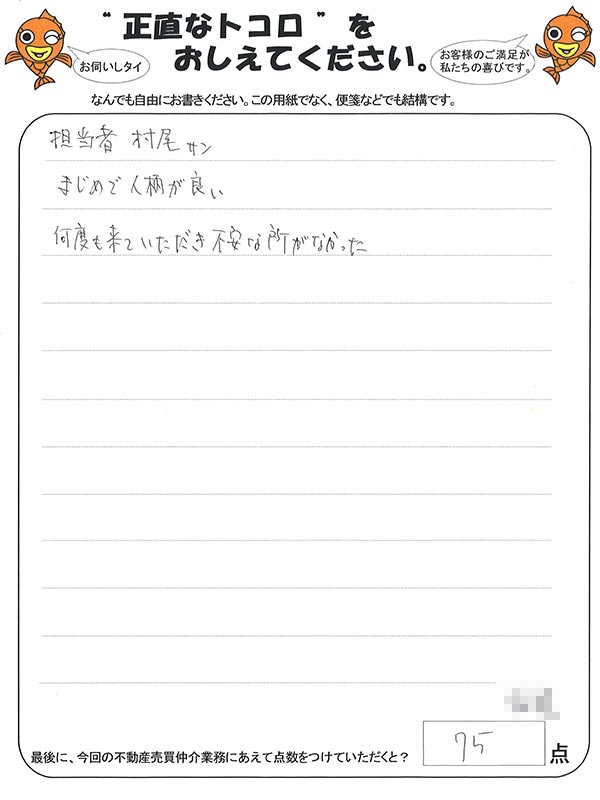 “正直なトコロ”を
おしえてください。
お伺いしタイ
お客様のご満足が
私たちの喜びです。
なんでも自由にお書きください。この用紙でなく、便箋などでも結構です。
担当者 村尾サン
まじめで人柄が良い
何度も来ていただき不安な所がなかった
最後に、今回の不動産売買仲介業務にあえて点数をつけていただくと？ 75 点